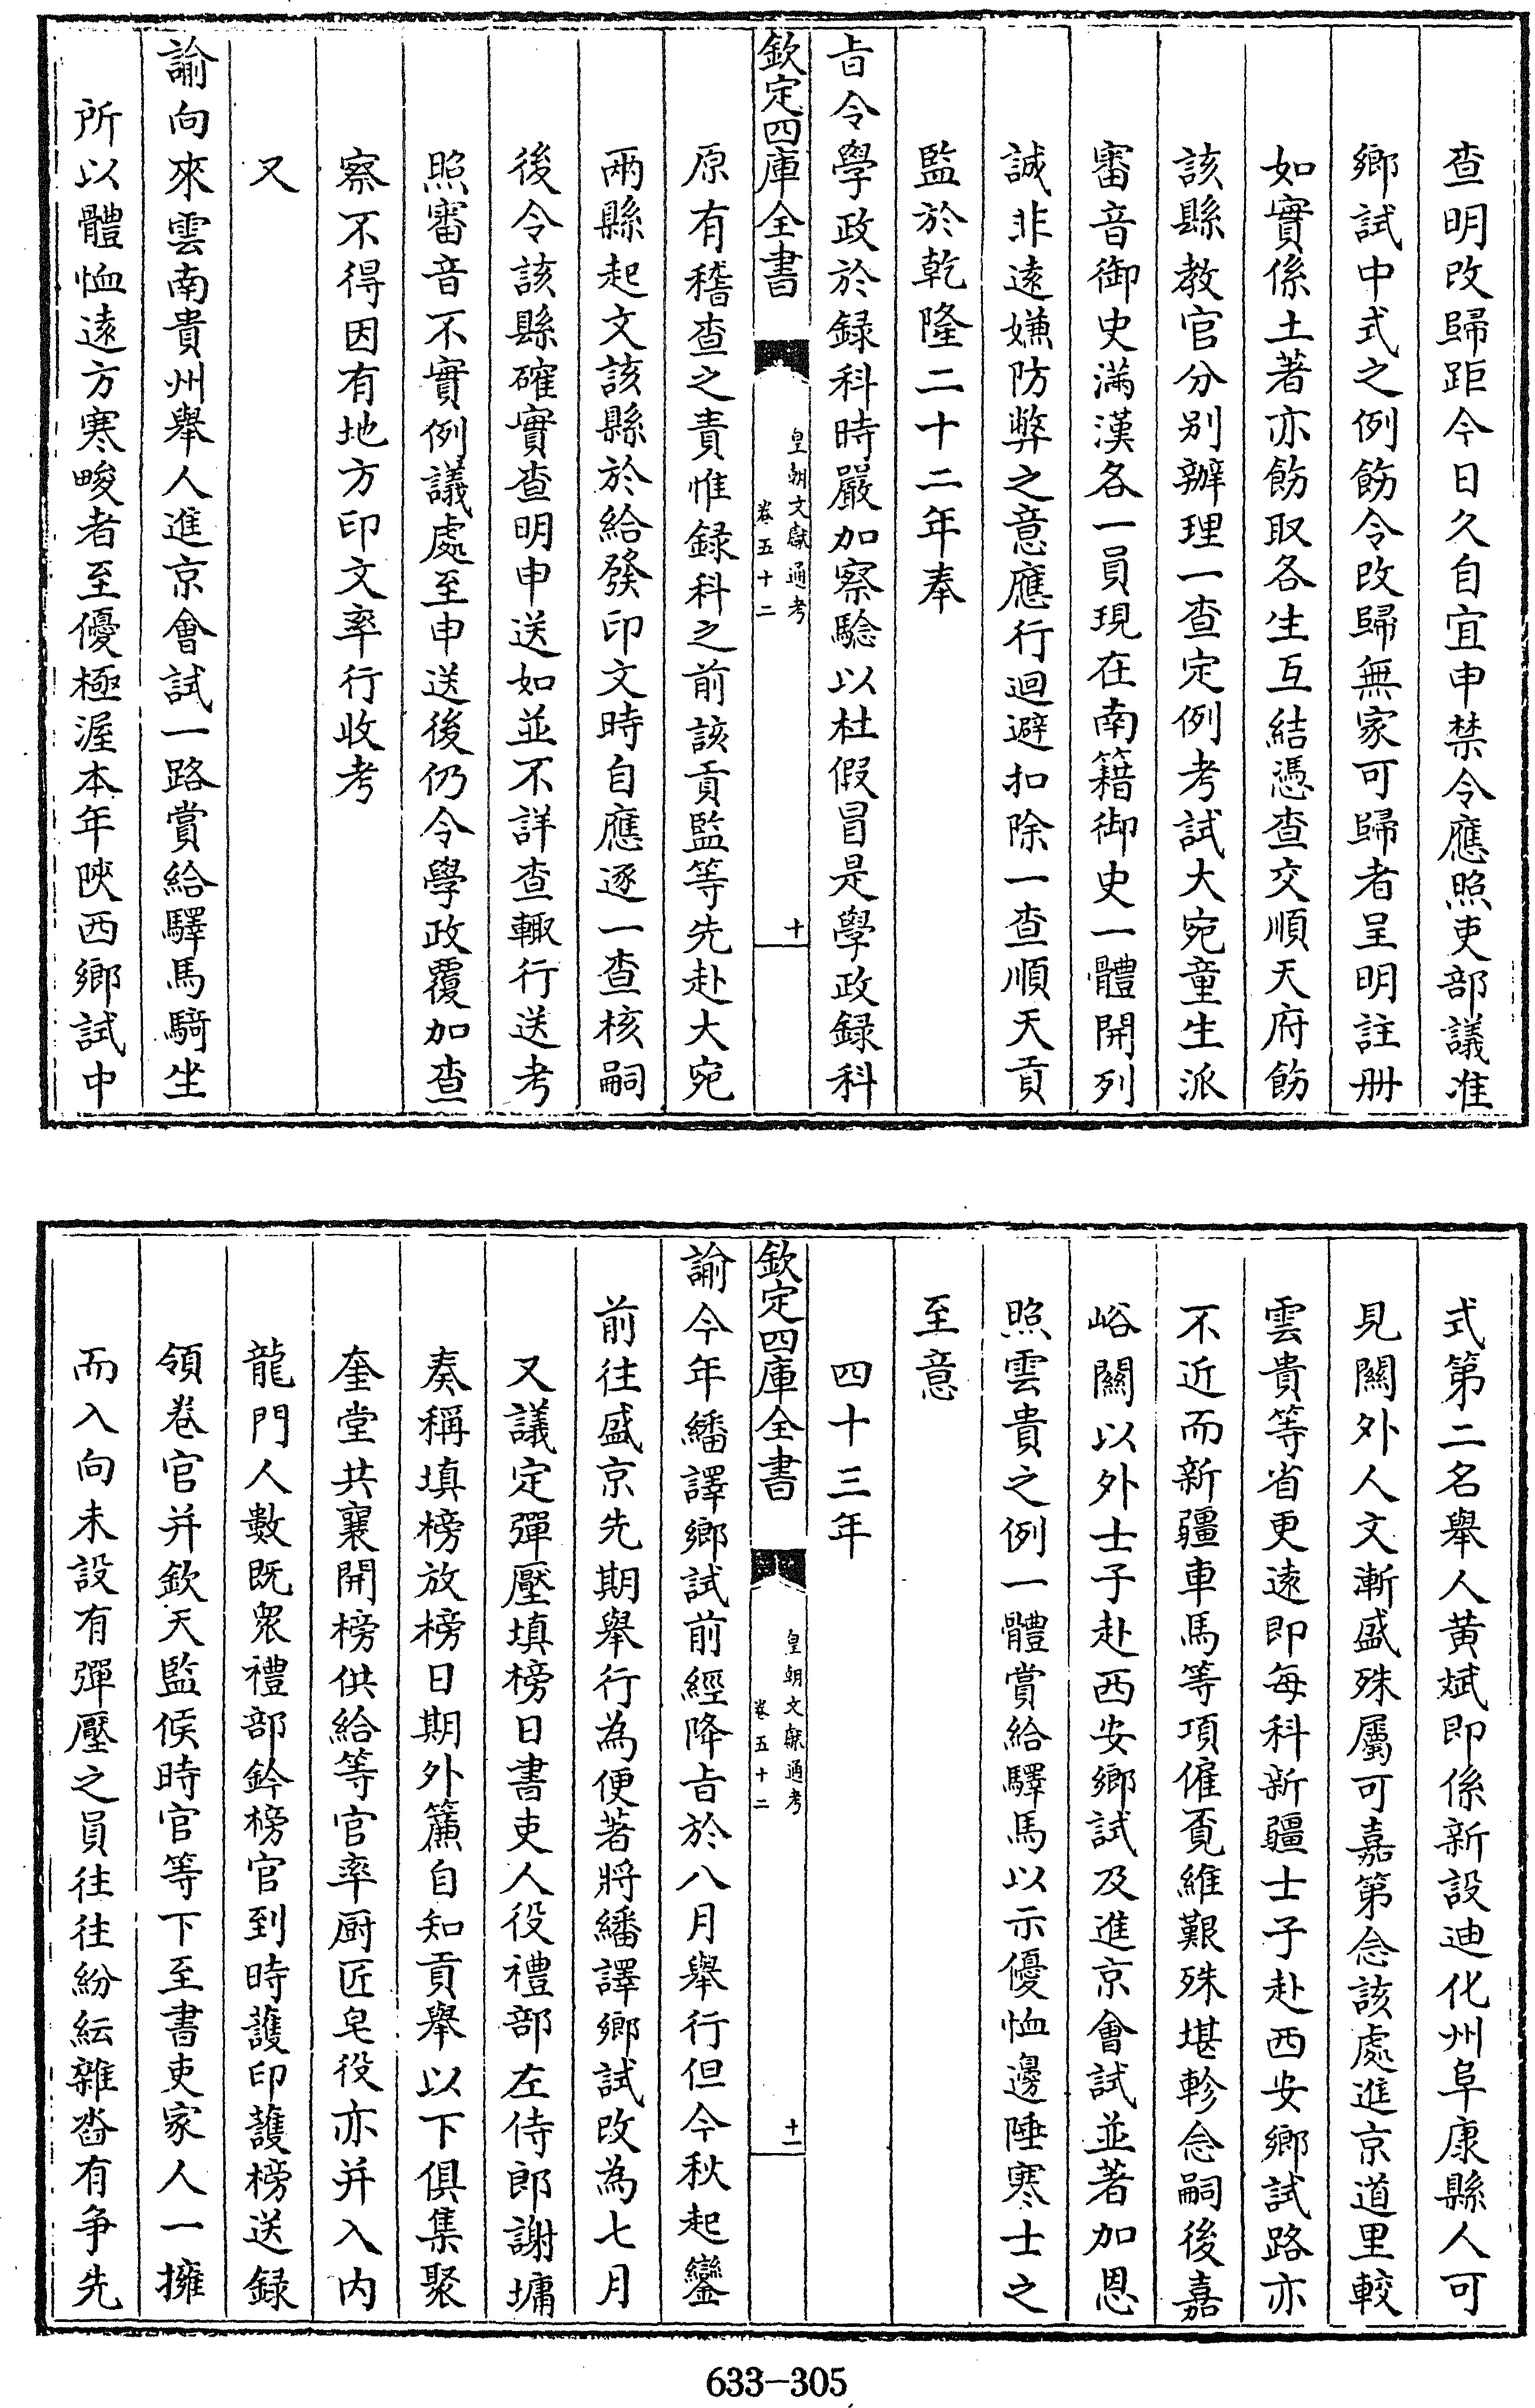 查明改歸距今日久自宜申禁令應照吏部議准
鄉試中式之例飭令改歸無家可歸者呈明註册
如實係土著亦飭取各生互結憑查交順天府飭
該縣教官分别辦理一查定例考試大宛童生派
審音御史滿漢各一員現在南籍御史一體開列
誠非逺嫌防弊之意應行迴避扣除一查順天貢
監於乾隆二十二年奉
㫖令學政於録科時嚴加察驗以杜假冒是學政録科
欽定四庫全書
皇朝文獻通考
卷五十二
十
原有稽查之責惟録科之前該貢監等先赴大宛
兩縣起文該縣於給發印文時自應逐一查核嗣
後令該縣確實查明申送如並不詳查輙行送考
照審音不實例議處至申送後仍令學政覆加查
察不得因有地方印文率行收考
又
諭向來雲南貴州舉人進京會試一路賞給驛馬騎坐
所以體恤逺方寒畯者至優極渥本年陜西鄉試中
式第二名舉人黄斌即係新設迪化州阜康縣人可
見關外人文漸盛殊屬可嘉第念該處進京道里較
雲貴等省更逺即每科新疆士子赴西安鄉試路亦
不近而新疆車馬等項僱覔維艱殊堪軫念嗣後嘉
峪關以外士子赴西安鄉試及進京會試並著加恩
照雲貴之例一體賞給驛馬以示優恤邊陲寒士之
至意
四十三年
欽定四庫全書
皇朝文獻通考
卷五十二
十一
諭今年繙譯鄉試前經降㫖於八月舉行但今秋起鑾
前往盛京先期舉行為便著將繙譯鄉試改為七月
又議定彈壓填榜日書吏人役禮部左侍郎謝墉
奏稱填榜放榜日期外簾自知貢舉以下俱集聚
奎堂共襄開榜供給等官率厨匠皂役亦并入内
龍門人數既衆禮部鈐榜官到時護印護榜送録
領卷官并欽天監候時官等下至書吏家人一擁
而入向未設有彈壓之員往往紛紜雜沓有争先
633-305